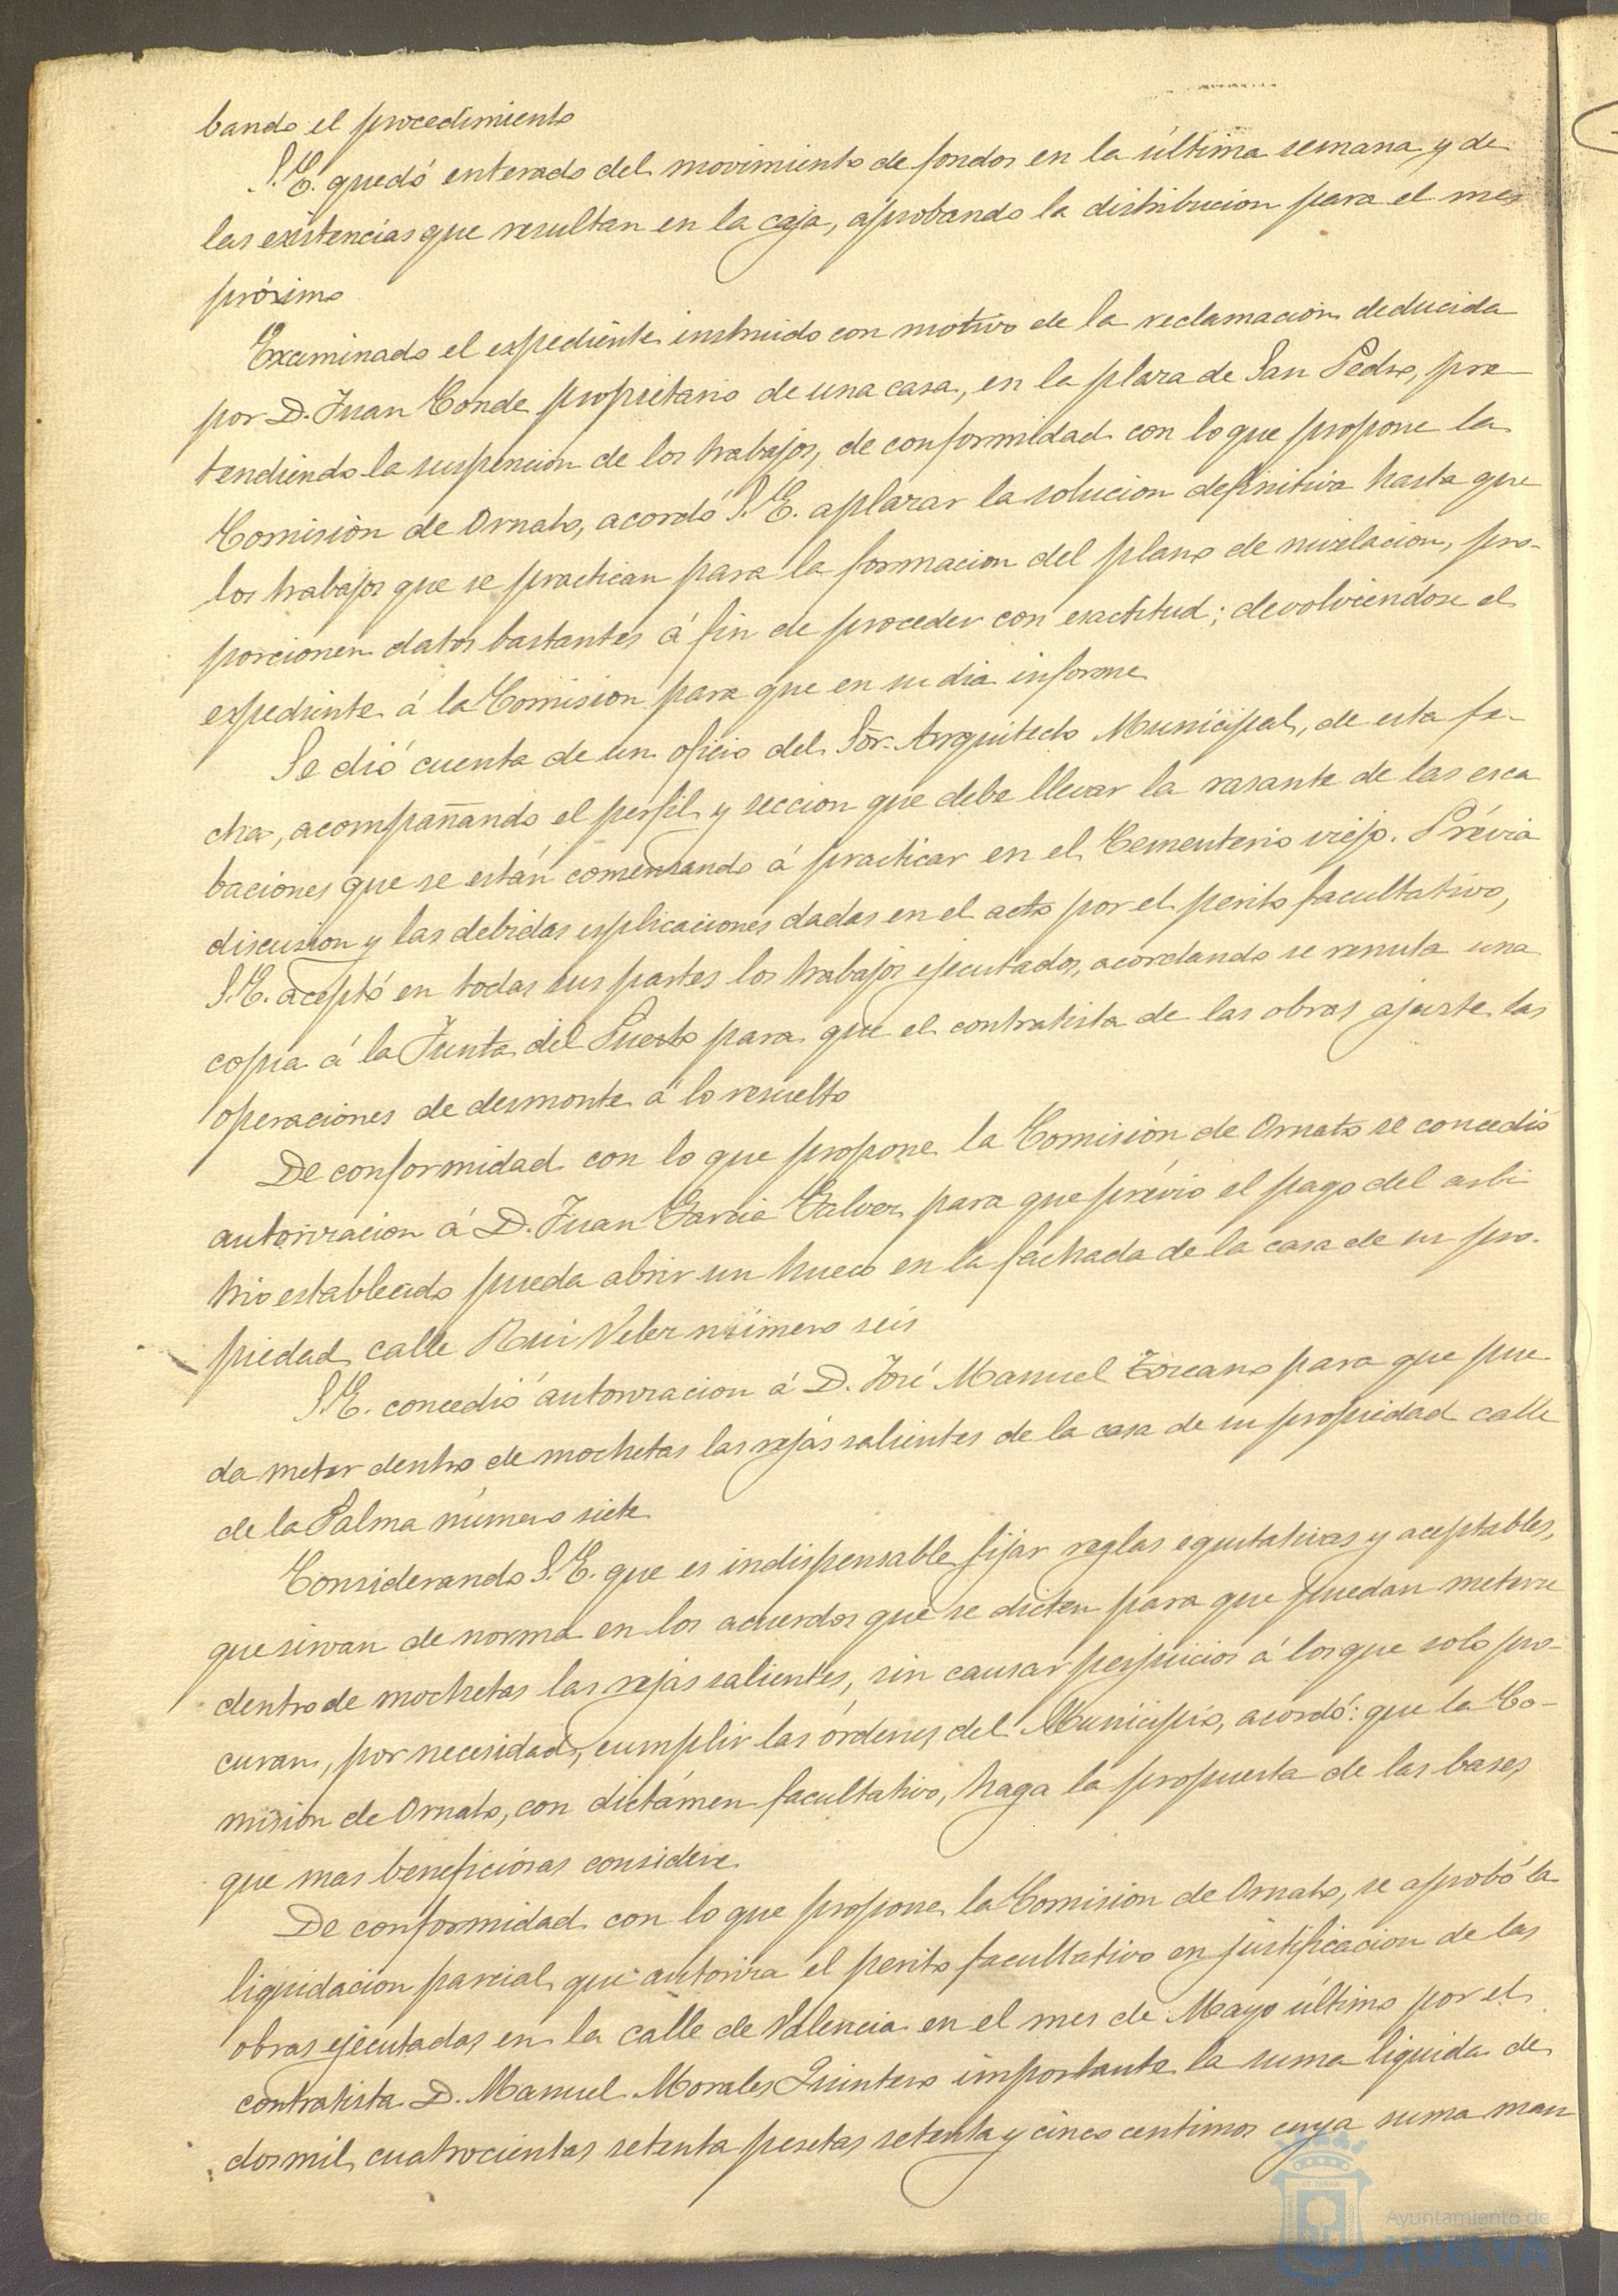 bando el procedimiento
S.E. quedó enterado del movimiento de fondos en la última semana y de
las existencias que resultan en la caja, aprobando la distribucion para el mes
próximo
Examinado el espediente instruido con motivo de la reclamacion deducida
por D. Juan Conde propietario de una casa, en la plaza de San Pedro, pre-
tendiendo la suspension de los trabajos, de conformidad con lo que propone la
Comisión de Ornato, acordó S.E. aplazar la solucion definitiva hasta que
los trabajos que se practican para la formacion del plano de nivelacion, pro-
porcionen datos bastantes á fin de proceder con exactitud; devolviendose el
espediente á la Comision para que en su dia informe
Se dió cuenta de un oficio del Sor. Arquitecto Municipal, de esta fe-
cha, acompañando el perfil y seccion que debe llevar la rasante de las esca
baciones que se están comenzando á practicar en el Cementerio viejo. Prévia
discusion y las debidas esplicaciones dadas en el acto por el perito facultativo,
S.E. aceptó en todas sus partes los trabajos ejecutados, acordando se remita una
copia á la Junta del Puerto para que el contratista de las obras ajuste las
operaciones de desmonte á lo resuelto
De conformidad con lo que propone la Comisión de Ornato se concedió
autorizacion á D. Juan Garcia Galvez para que prévio el pago del arbi-
trio establecido pueda abrir un hueco en la fachada de la casa de su pro-
piedad calle Rui Velez número seis
S.E. concedió autorizacion á D. José Manuel Toscano para que pue
da meter dentro de mochetas las rejas salientes de la casa de su propiedad calle
de la Palma número siete
Considerando S.E. que es indispensable fijar reglas equitativas y aceptables,
que sirvan de norma en los acuerdos que se dicten para que puedan meterse
dentro de mochetas las rejas salientes, sin causar perjuicios á los que solo pro-
curan, por necesidad, cumplir las órdenes del Municipio, acordó: que la Co-
misión de Ornato, con dictámen facultativo, haga la propuesta de las bases
que mas beneficiosas considere
De conformidad con lo que propone la Comision de Ornato, se aprobó la
liquidacion parcial que autoriza el perito facultativo en justificacion de las
obras ejecutadas en la calle de Valencia en el mes de Mayo último por el
contratista D. Manuel Morales Quintero importante la suma liquida de
dos mil cuatrocientas setenta pesetas setenta y cinco centimos cuya suma man
Ayuntamiento de
HUELVA